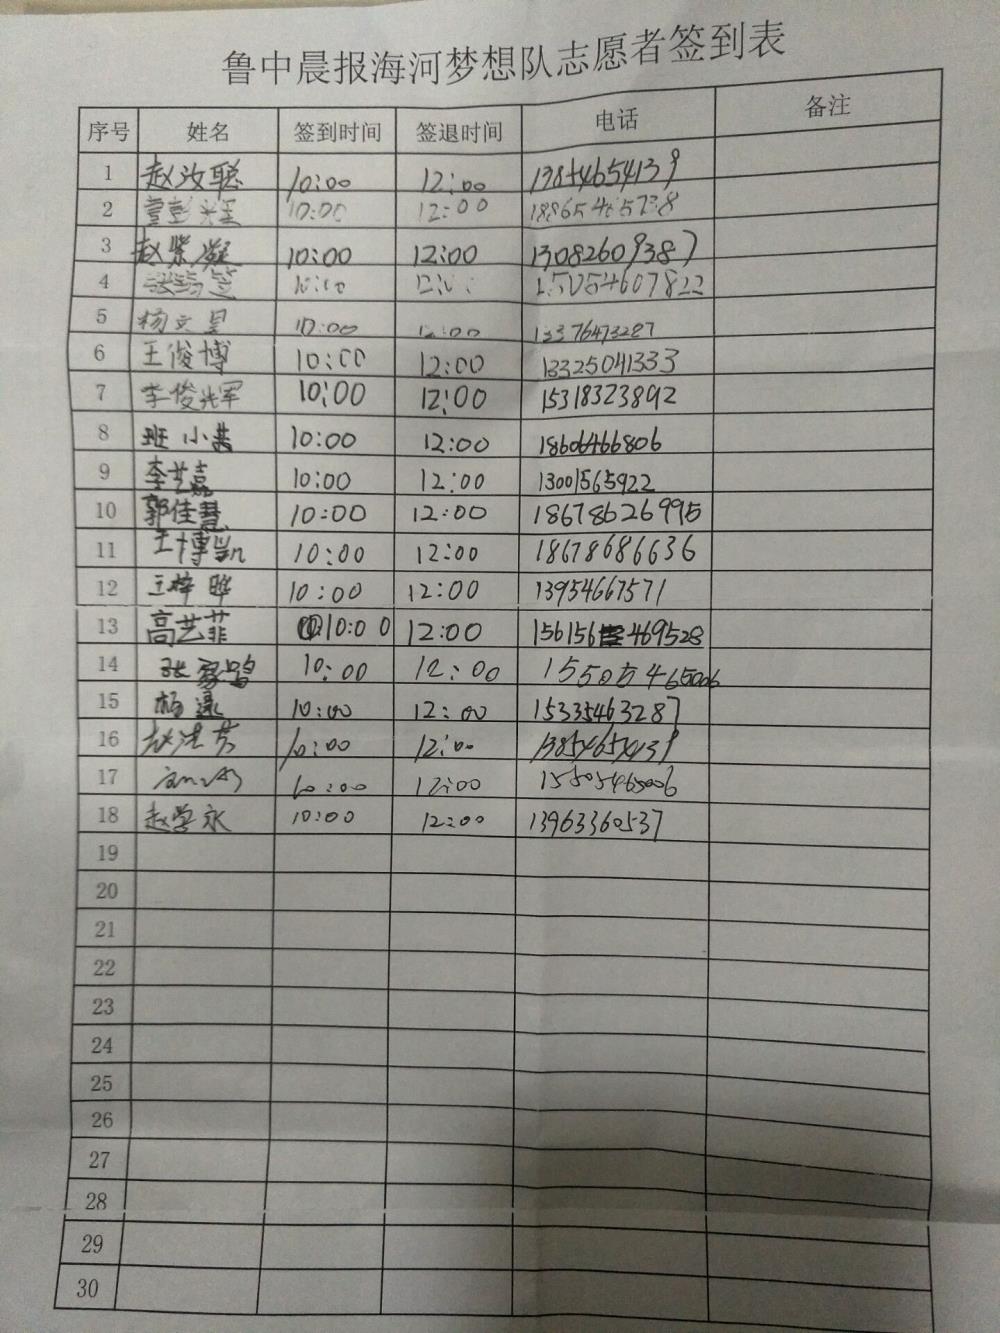 鲁中晨报海河梦想队志愿者签到表
序号 姓名 签到时间 签退时间 电话 备注
1 赵汝聪 10:00 12:00 13854654139
2 10:00 12:00
3 赵紫凝 10:00 12:00 13082609387
4 15054607822
5 杨文昊 10:00 12:00 13376473287
6 王俊博 10:00 12:00 13325041333
7 李俊光军 10:00 12:00 15318323892
8 班小茜 10:00 12:00 18606466806
9 李艺嘉 10:00 12:00 13001565922
10 郭佳慧 10:00 12:00 18678626995
11 王博凯 10:00 12:00 18678686636
12 王梓晔 10:00 12:00 13954667571
13 高艺菲 10:00 12:00 156156469528
14 10:00 12:00 15505465006
15 杨 10:00 12:00 15335463287
16 赵 10:00 12:00 13854654139
17 10:00 12:00 15505465006
18 赵学永 10:00 12:00 13963360537
19
20
21
22
23
24
25
26
27
28
29
30